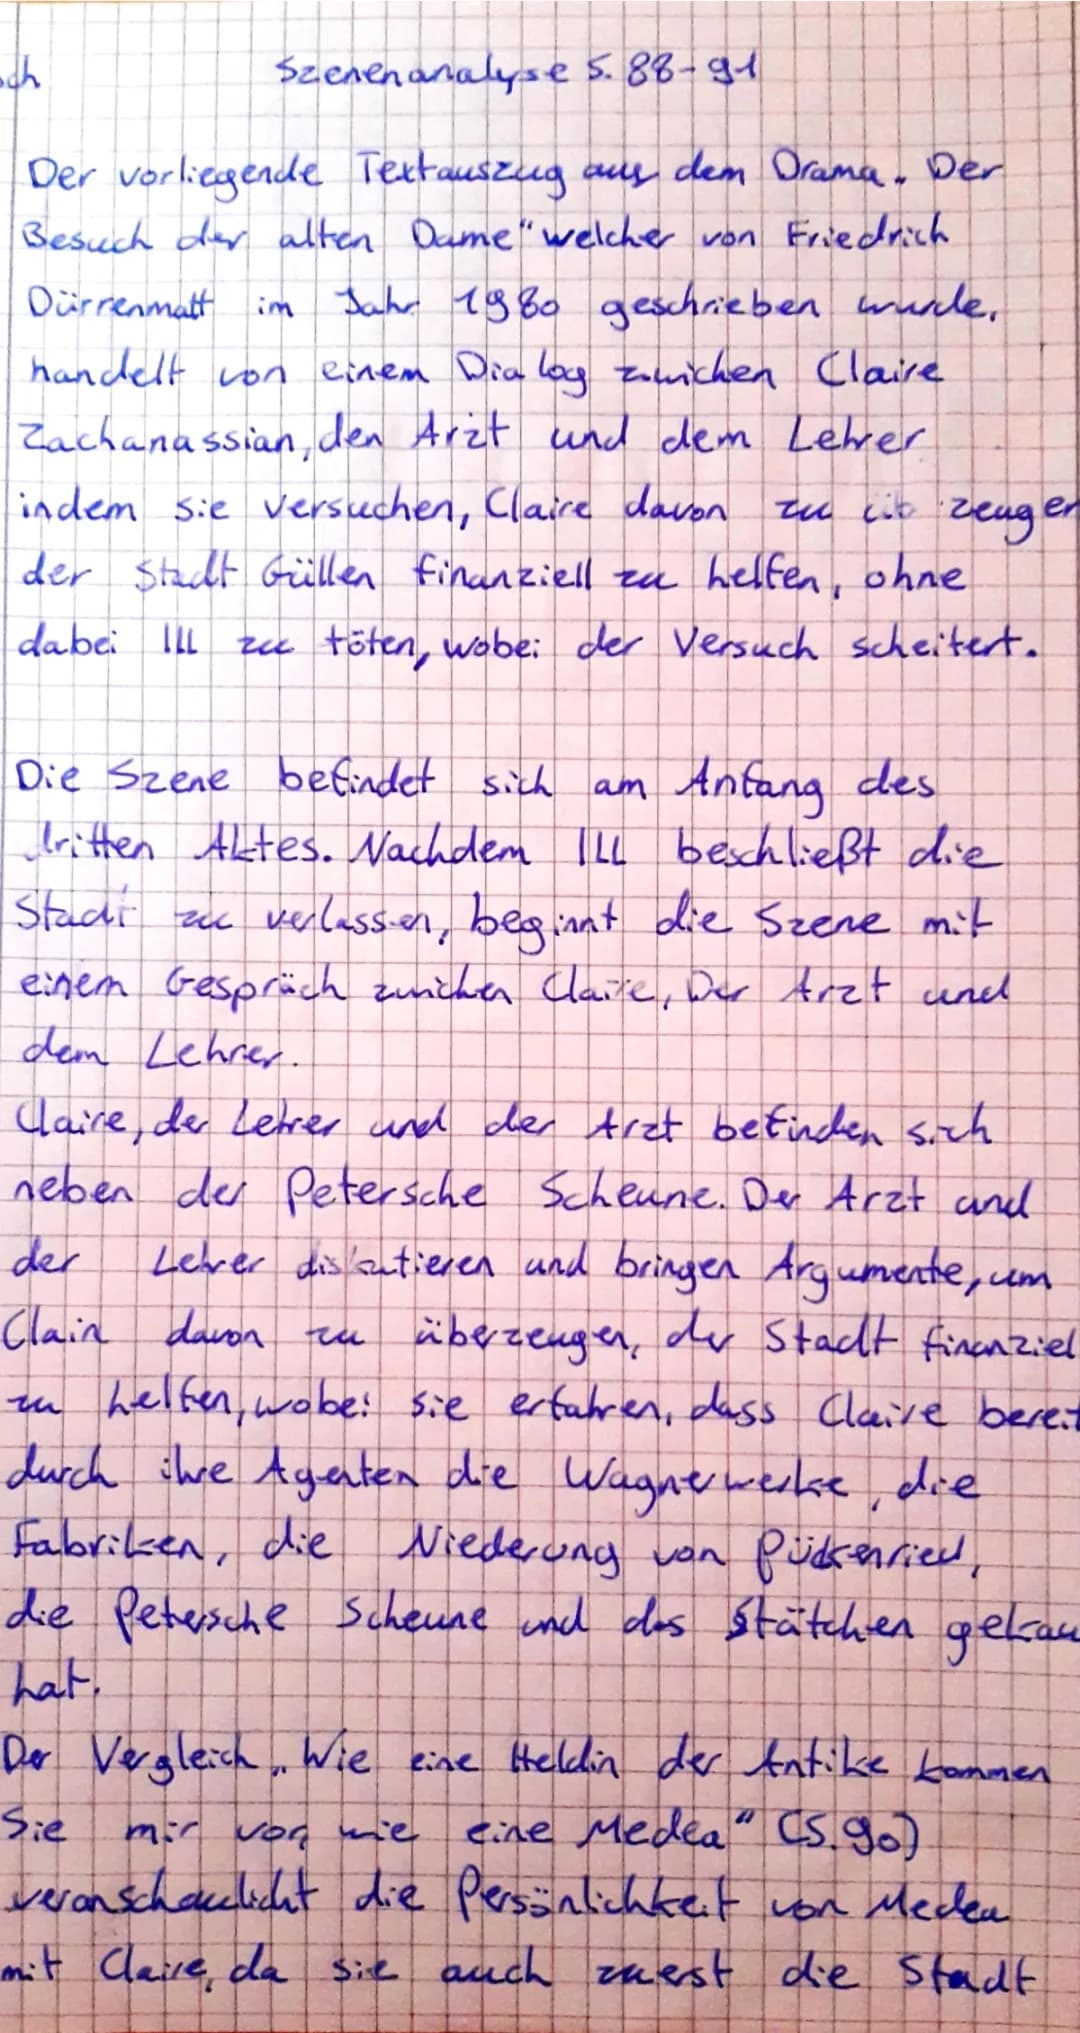 ch
Szenenanalyse S. 88-91
Der vorliegende Textauszug aus dem Drama „Der
Besuch der alten Dame" welcher von Friedrich
Dürrenmatt im Jahr 1980 geschrieben wurde,
handelt von einem Dialog zwichen Claire
Zachanassian, den Arzt und dem Lehrer
indem sie versuchen, Claire davon zu zeugen
der Stadt Güllen finanziell zu helfen, ohne
dabei Ill zu töten, wobei der Versuch scheitert.
Die Szene befindet sich am Anfang des
dritten Aktes. Nachdem Ill beschließt die
Stadt zu verlassen, beginnt die Szene mit
einem Gespräch zwichen Claire, Der Arzt und
dem Lehrer.
Claire, der Lehrer und der Arzt befinden sich
neben der Petersche Scheune. Der Arzt und
der Lehrer diskutieren und bringen Argumente, um
Clair davon zu überzeugen, der Stadt finanziel
zu helfen, wobei sie erfahren, dass Claire bereit
durch ihre Agenten die Wagnerwerke, die
Fabriken, die Niederung von Pückenried,
die Petersche Scheune und das Stätchen gekau
hat.
Der Vergleich „Wie eine Heldin der Antike kommen
Sie mir vor, wie eine Medea" (S. 90)
veranschaulicht die Persönlichkeit von Medea
mit Claire, da sie auch zuerst die Stadt